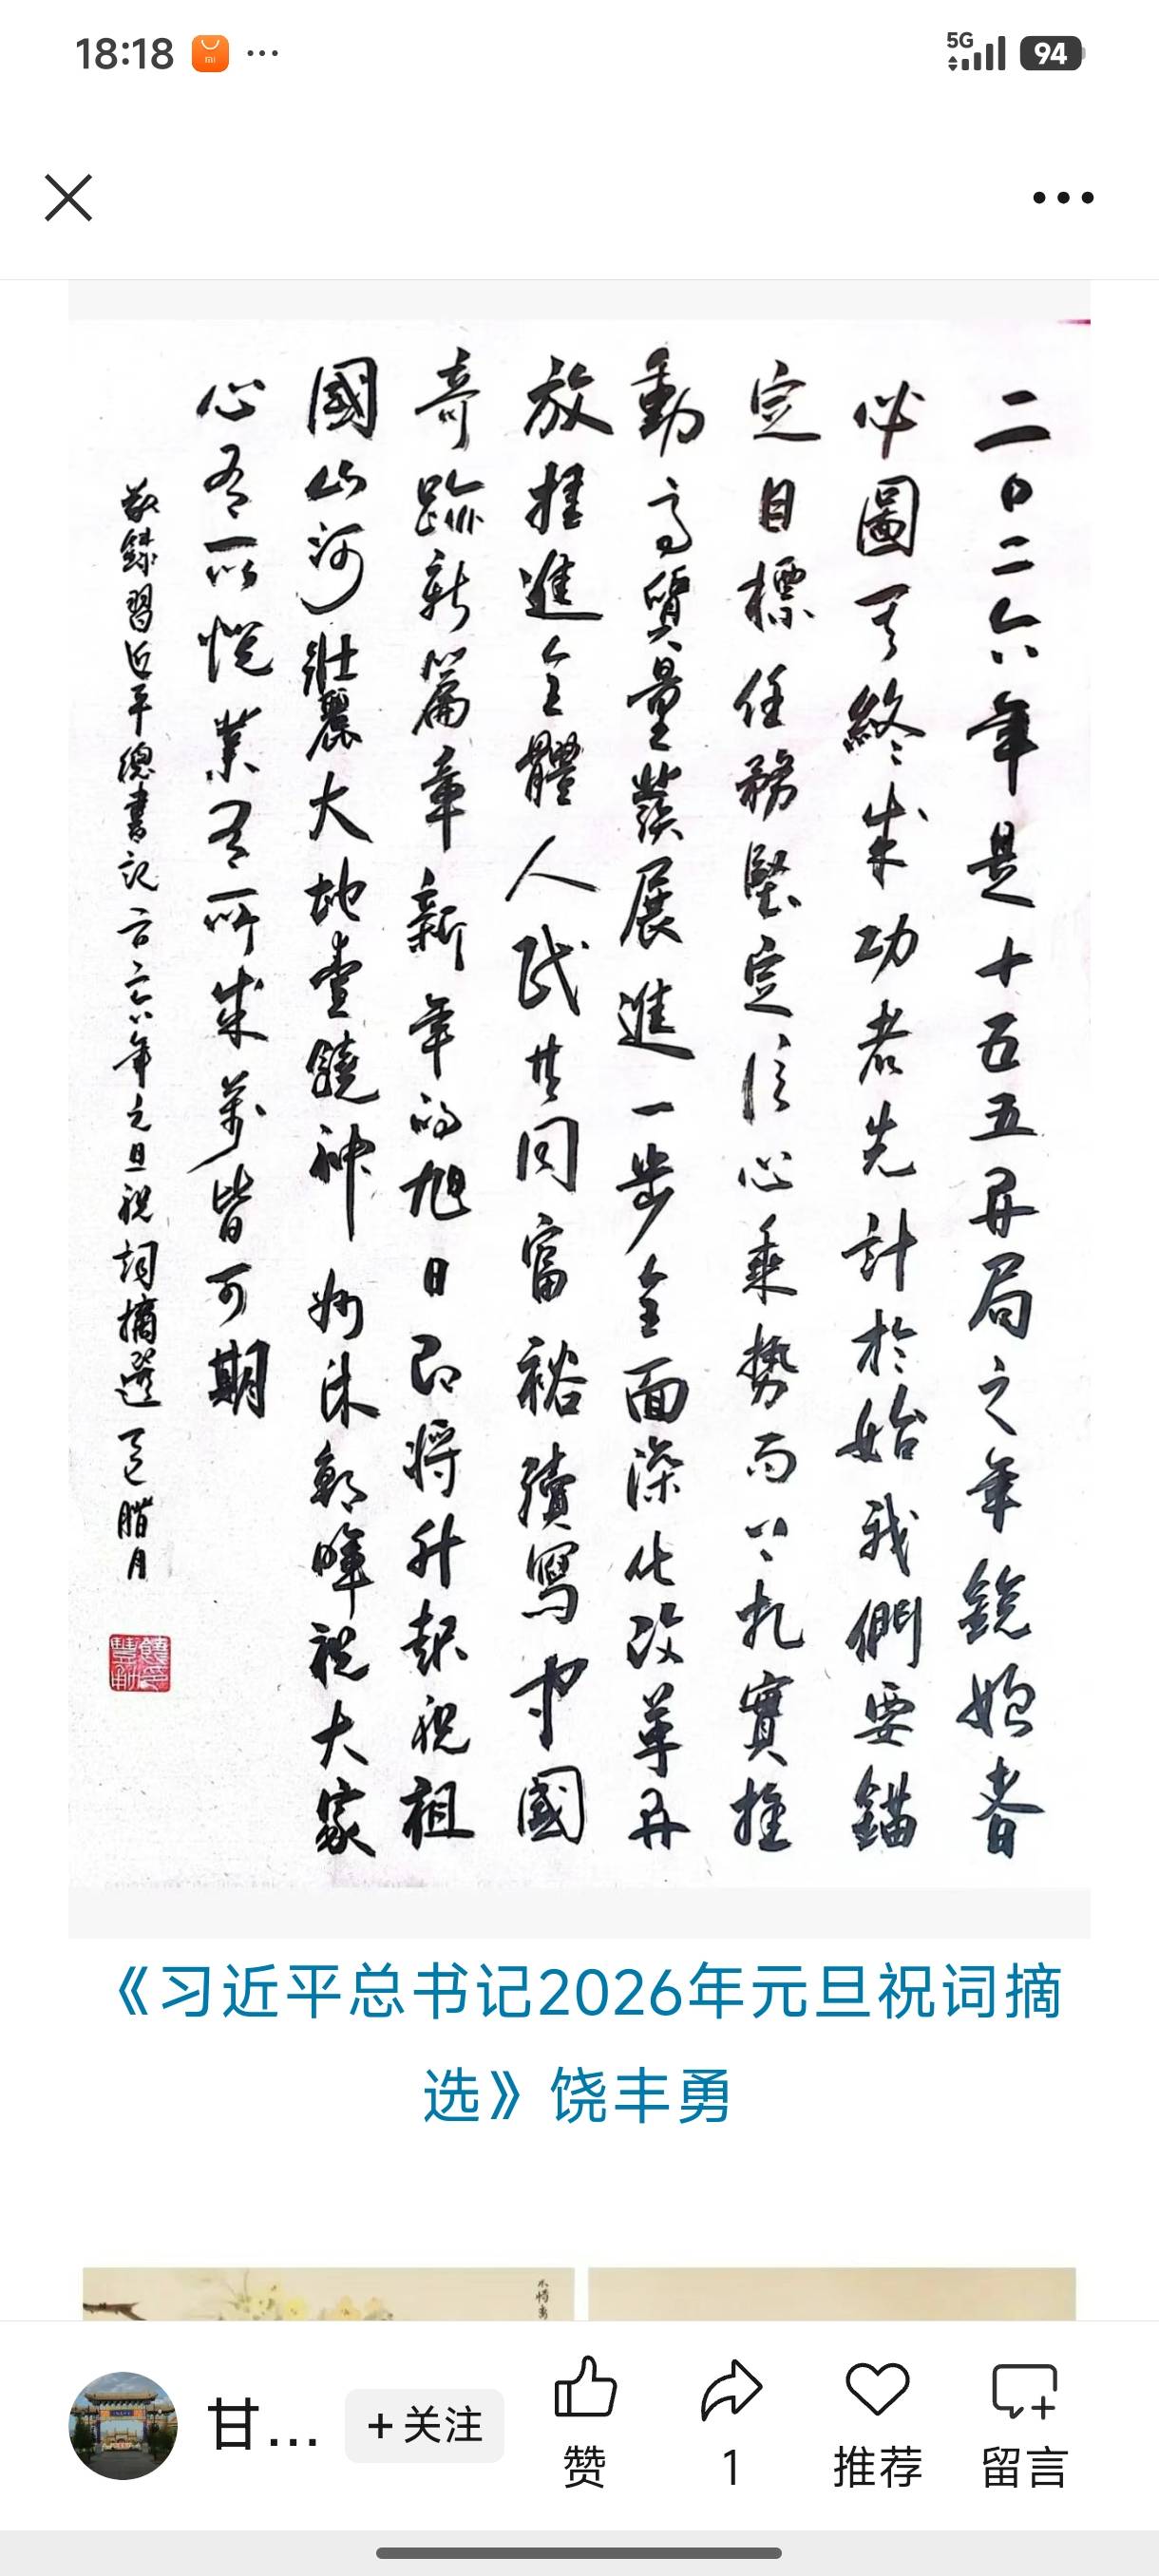 18:18
5G
94
二〇二六年是十五五开局之年銳始者
必圖其終成功者先計於始我們要錨
定目標任務堅定信心乘势而上扎實推
動高質量發展進一步全面深化改革开
放推進全體人民共同富裕續寫中國
奇跡新篇章新年的旭日即将升起祝祖
國山河壯麗大地豊饒神州沐朝暉祝大家
心有所悦業有所成萬事皆可期
敬録習近平總書記二〇二六年元旦祝詞摘選 乙巳腊月
《习近平总书记2026年元旦祝词摘
选》饶丰勇
甘...
+关注
赞
1
推荐
留言